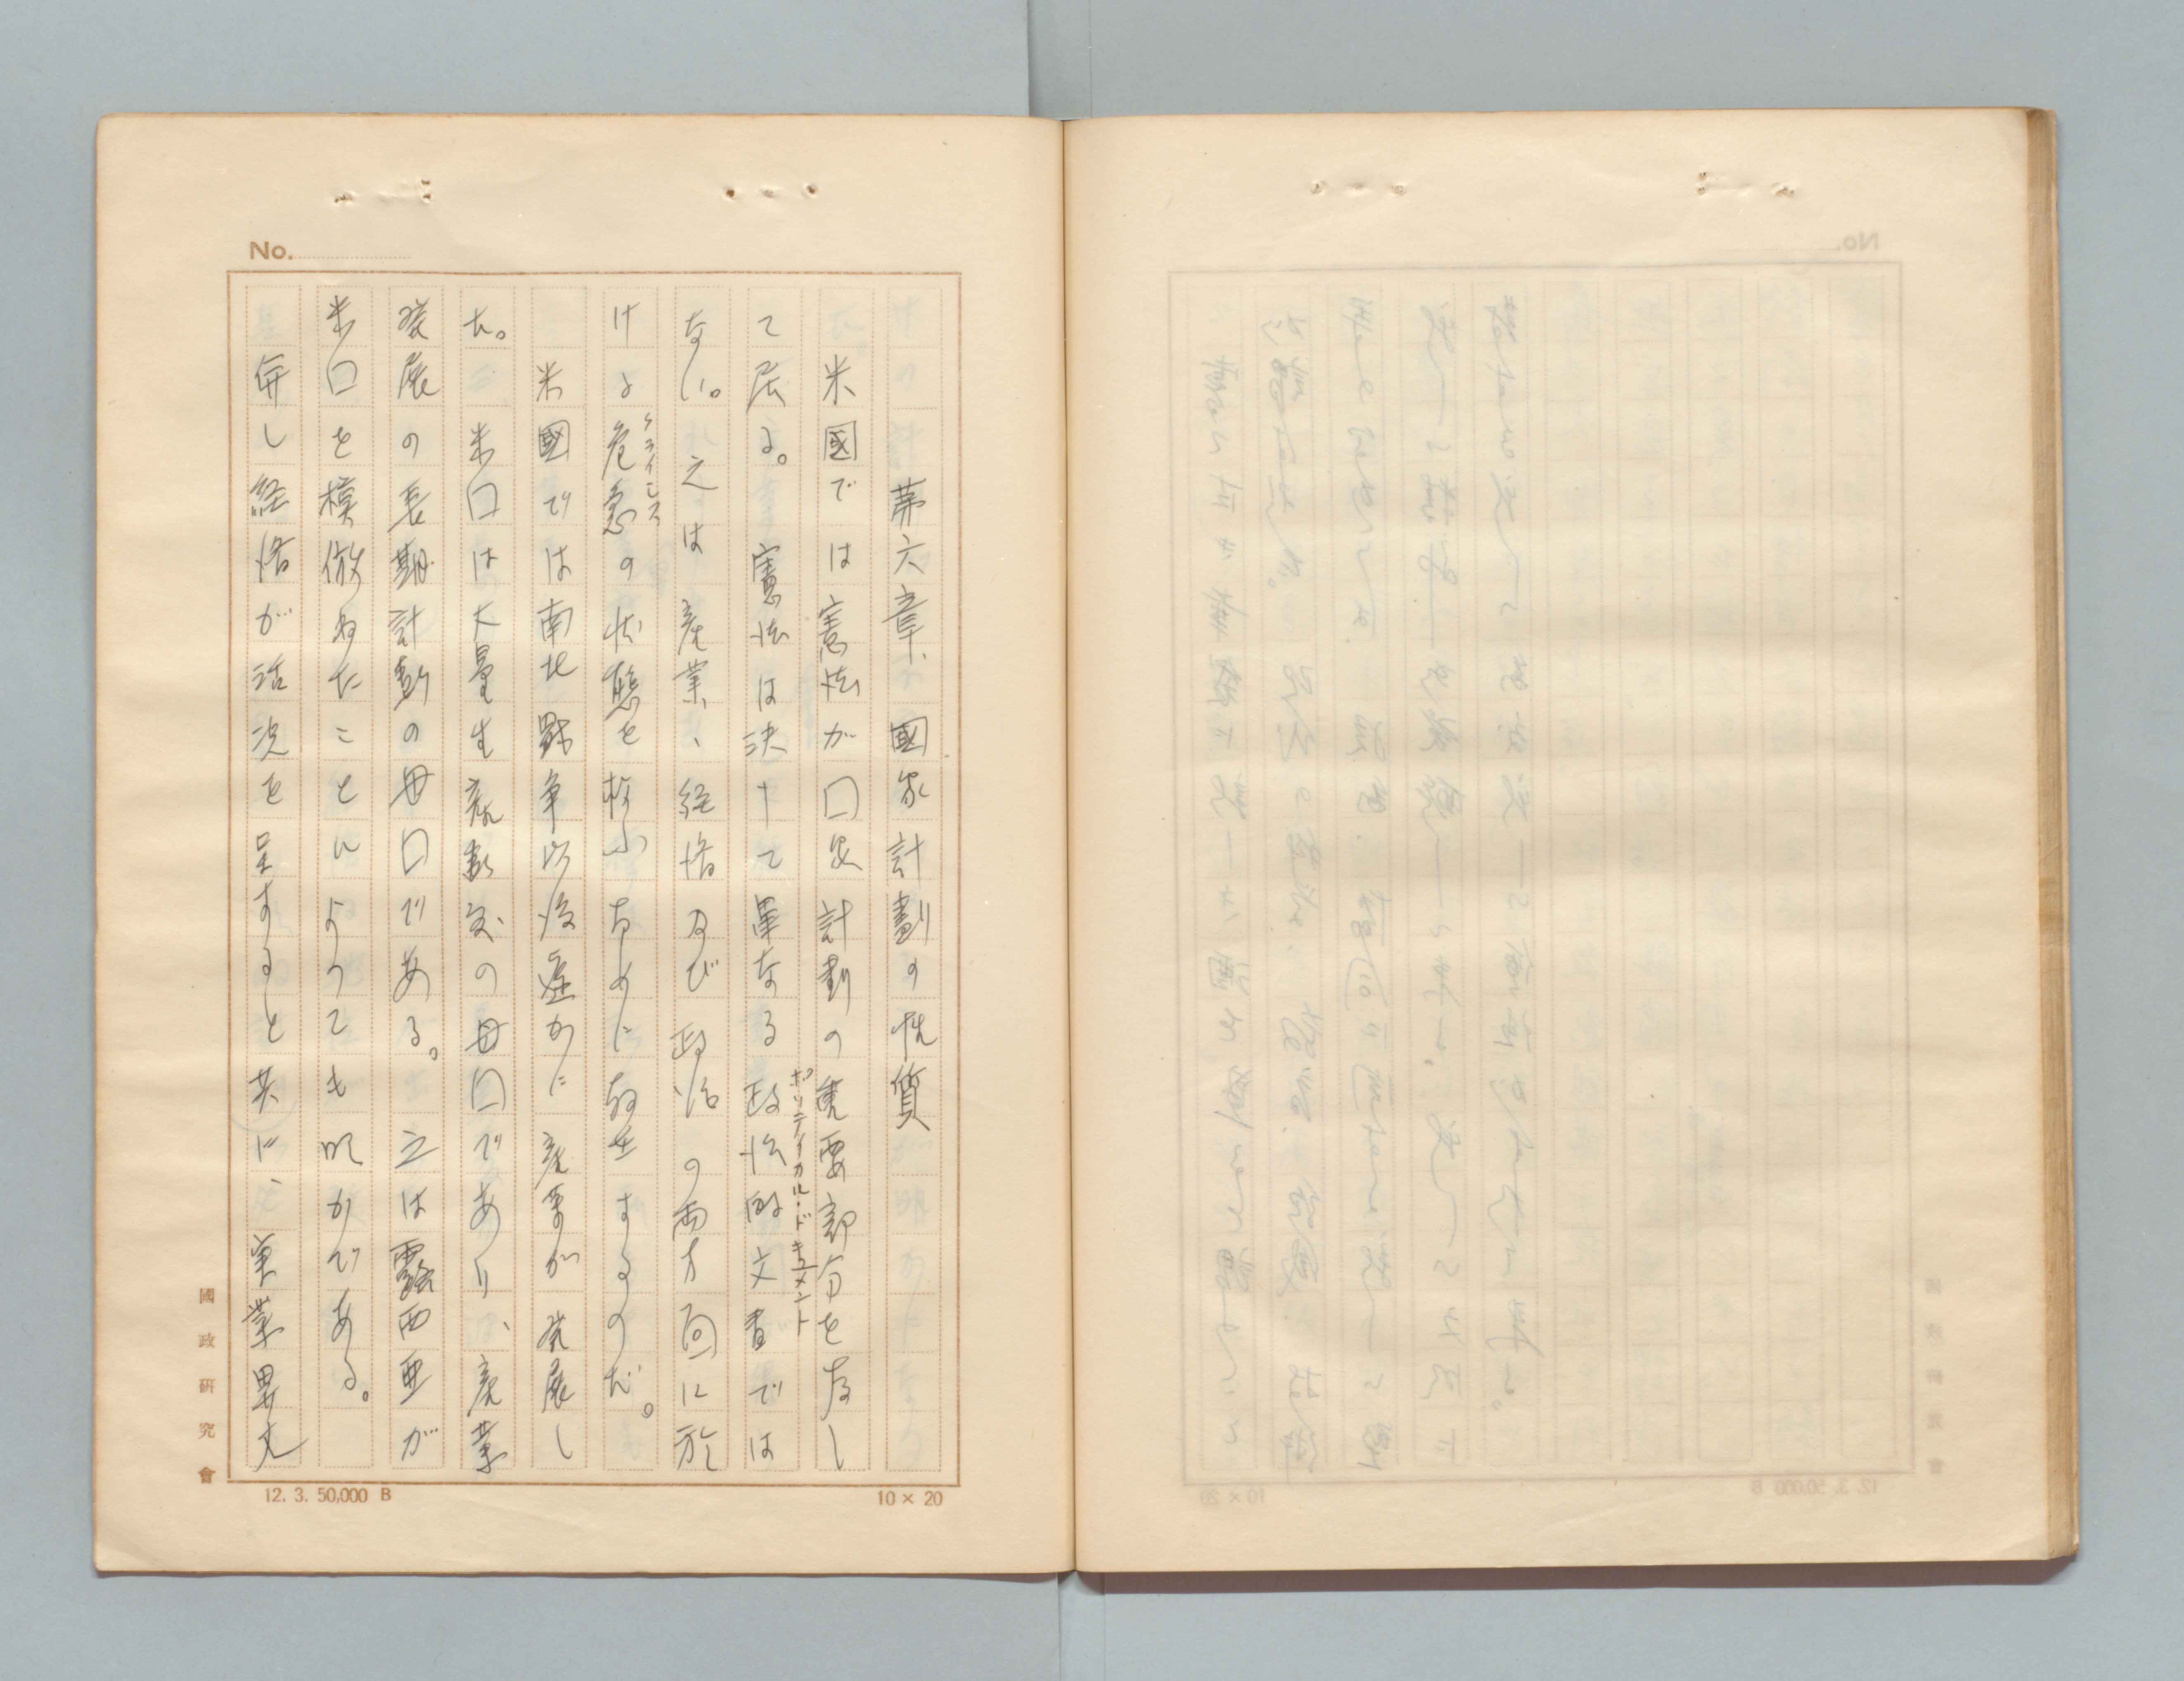 No.
第六章、國家計劃の性質
米國では憲法が口家計劃の重要部分を存し
て居る。憲法は決して單なる政治的文書では
ポリティカル・ドキュメント
ない。之は産業、経済及び政治の両方面に於
ける危急の状態を
クライシス
ために存在するのだ。
米國では南北戦争以後遥かに産業が発展し
た。米口は大量生産
の母口であり、産業
発展の長期計劃の母口である。之は露西亜が
米口を模倣
たことによっても明かである。
併し経済が活況を呈すると共に、実業界丈
國政研究會
12. 3. 50,000 B
10 × 20